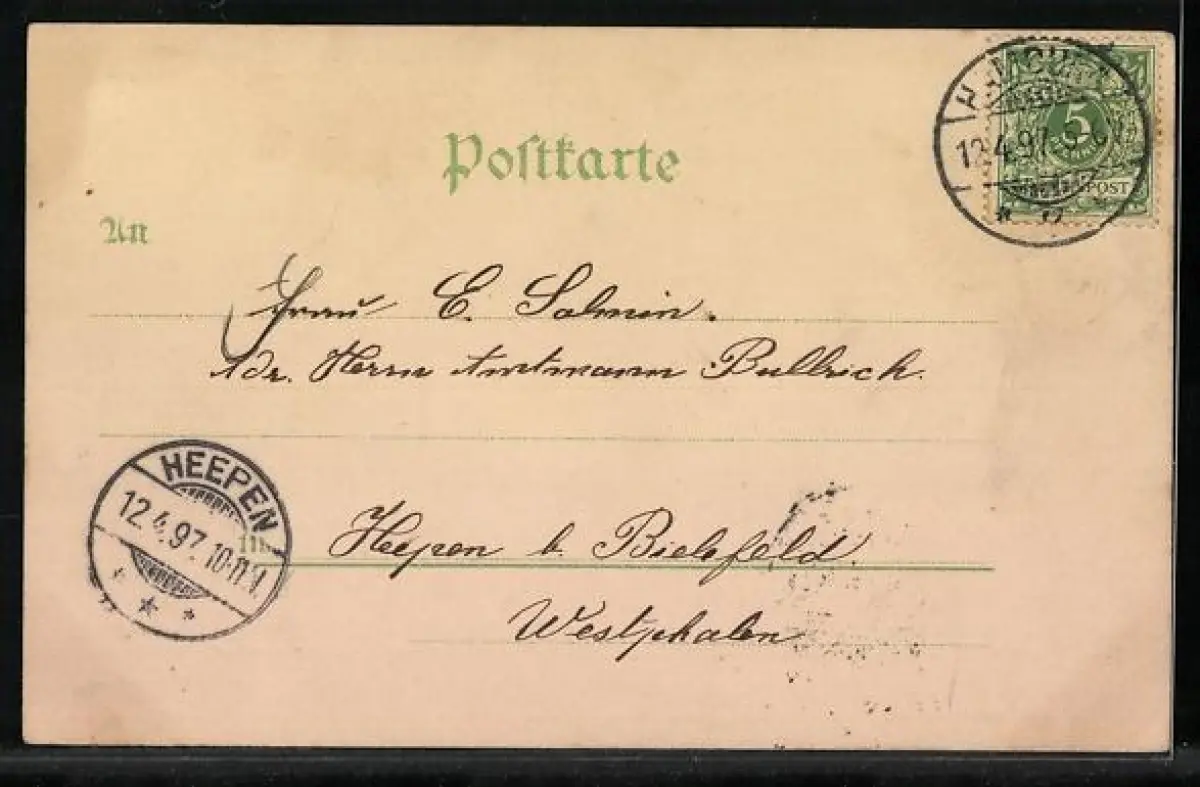 Postkarte
12.4.97
5
POST
An
Frau E. Salmin.
Adr. Herrn Amtmann Bullrich.
HEEPEN
12.4.97. 10-11.V.
In
Heepen b. Bielefeld.
Westphalen